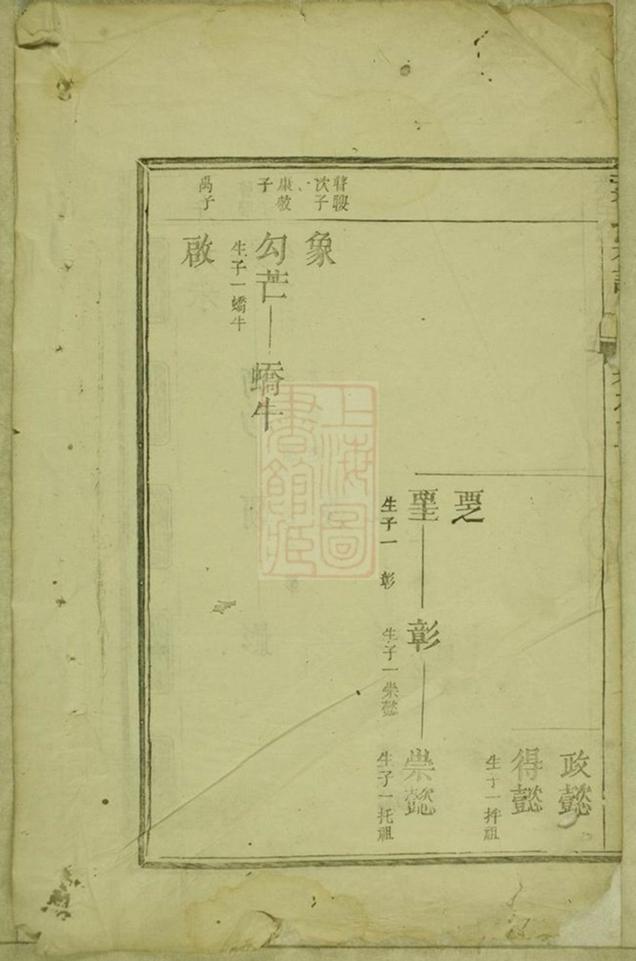 政懿
得懿
生子一拌祖
崇懿
生子一托祖
彰
生子一崇懿
生子一 彰
瞽瞍次子
象
康敬子
勾芒
生子一蟜牛
蟜牛
禹子
啟
上海圖書館藏